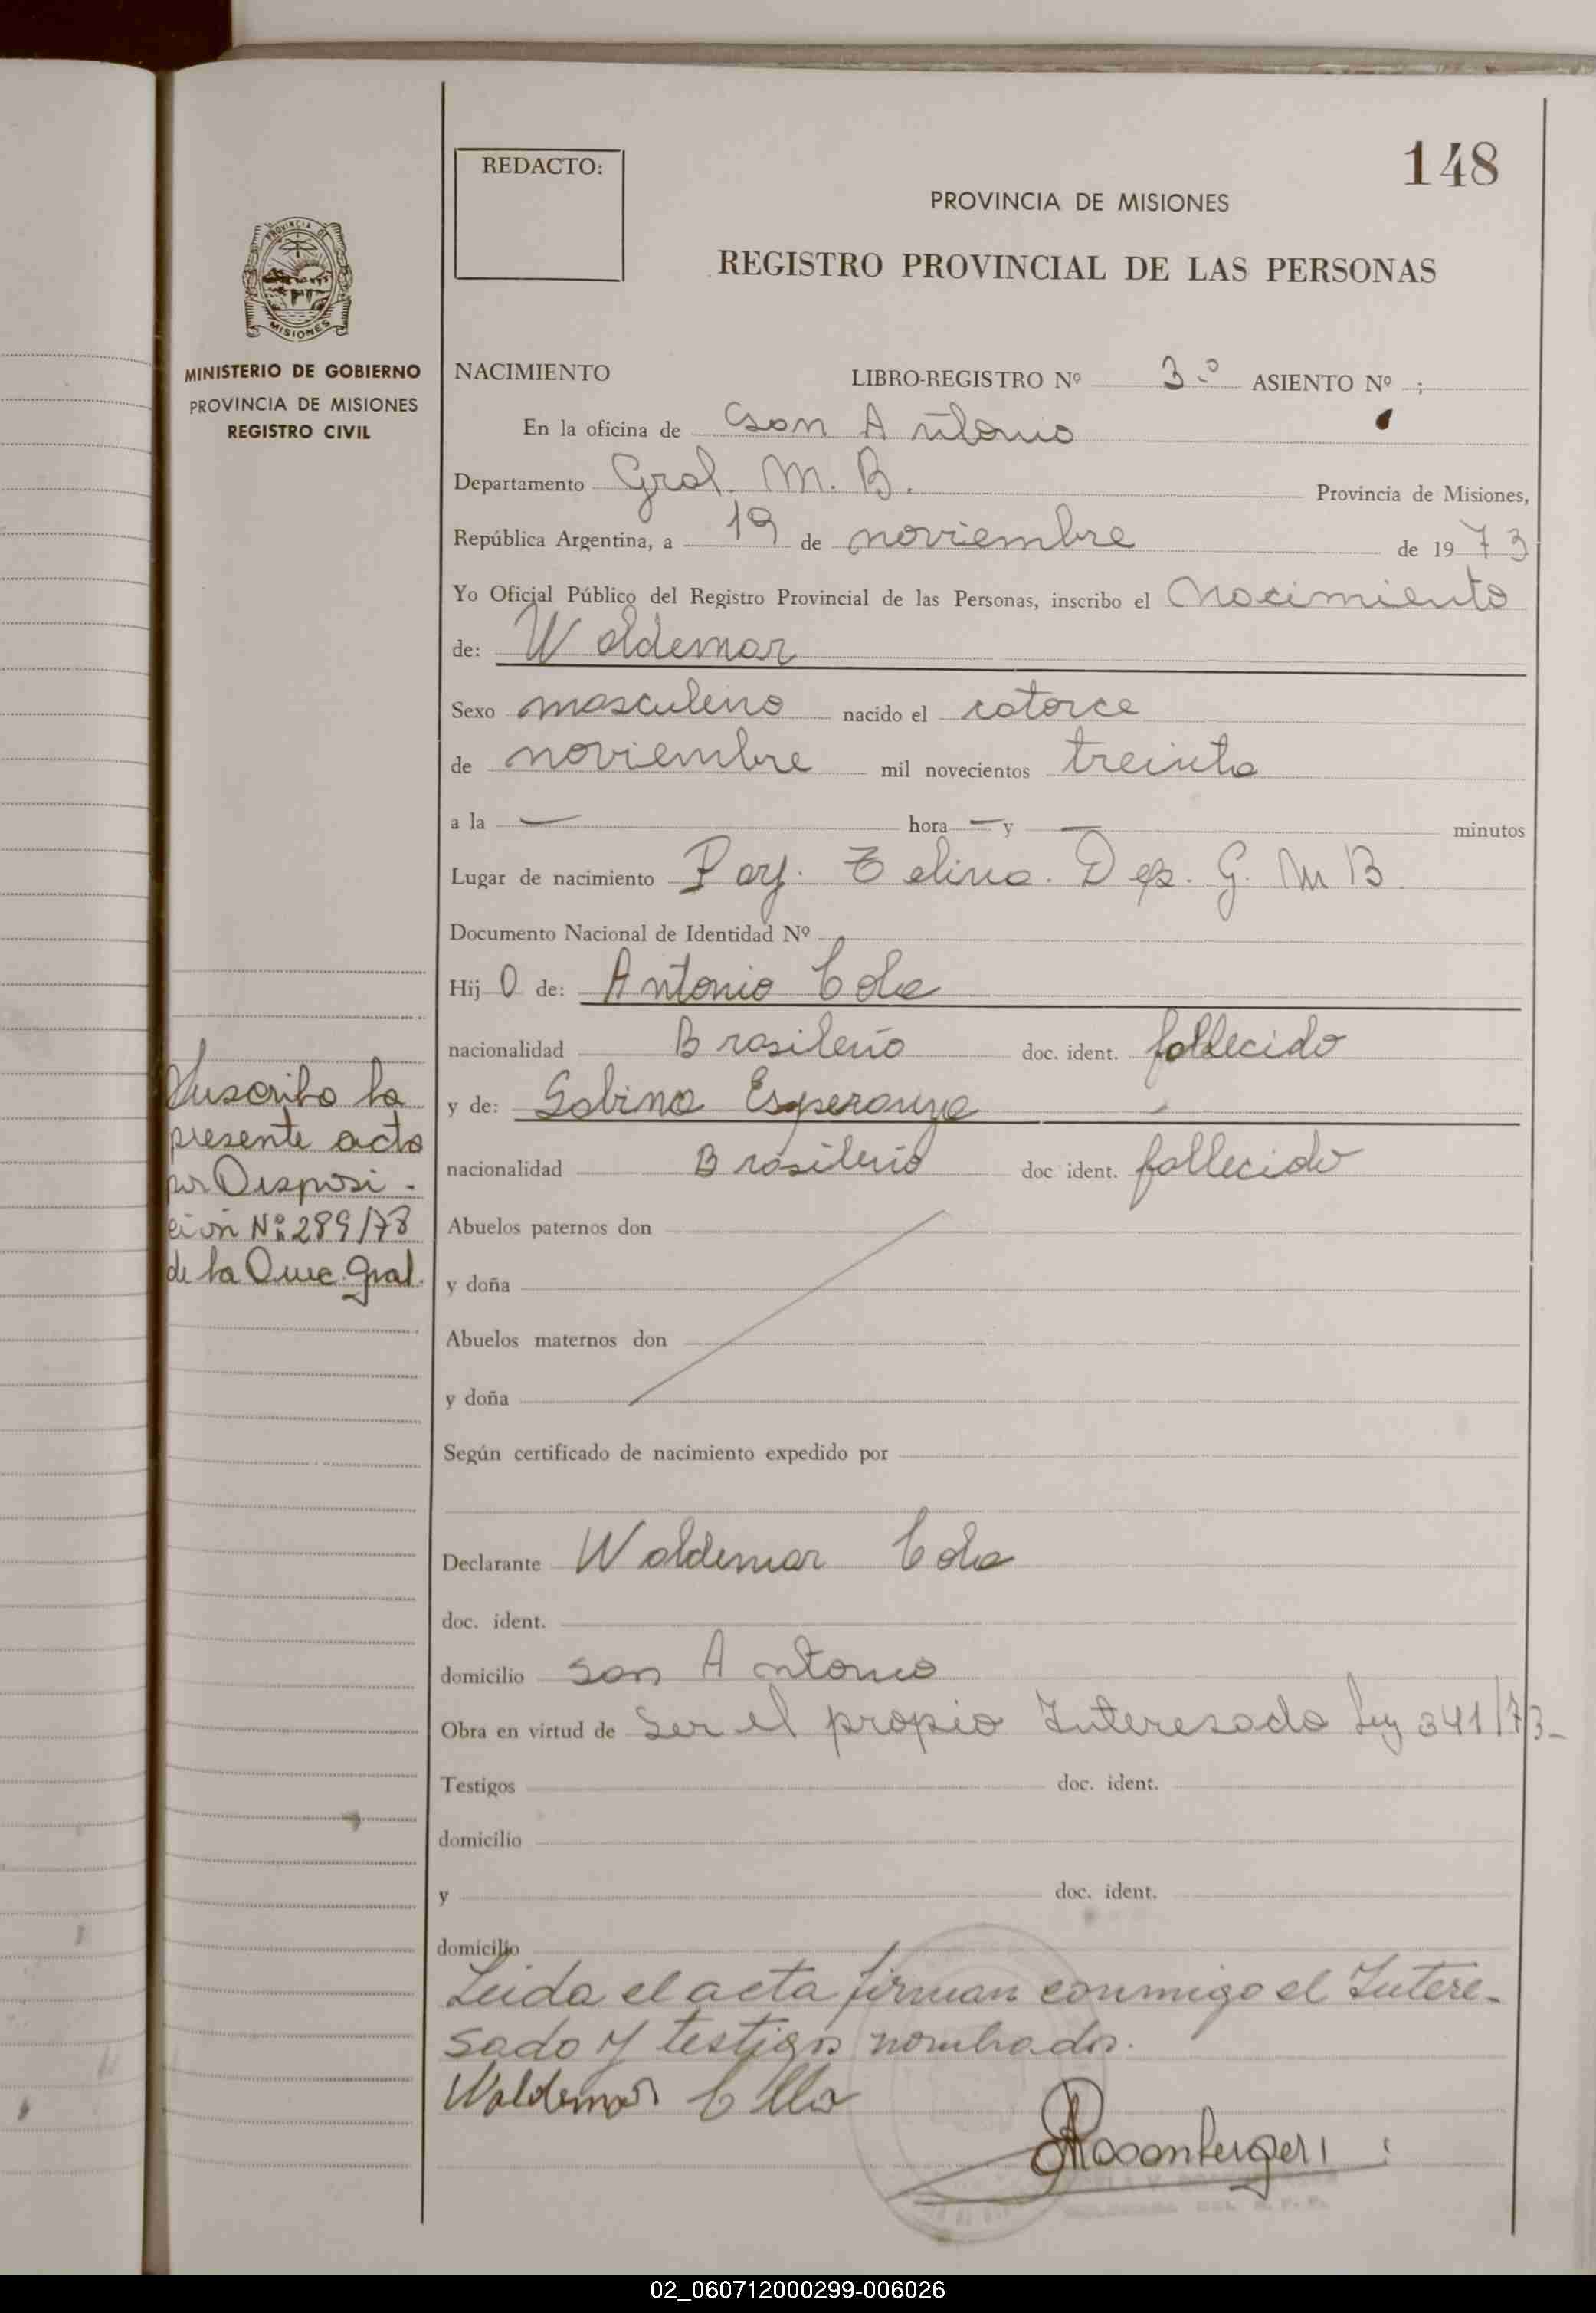 148
REDACTO:
PROVINCIA DE MISIONES
REGISTRO PROVINCIAL DE LAS PERSONAS
PROVINCIA DE
MISIONES
MINISTERIO DE GOBIERNO
PROVINCIA DE MISIONES
REGISTRO CIVIL
NACIMIENTO LIBRO-REGISTRO Nº 3º ASIENTO Nº
En la oficina de San Antonio
Departamento Gral. M. B. Provincia de Misiones,
República Argentina, a 19 de noviembre de 1973
Yo Oficial Público del Registro Provincial de las Personas, inscribo el Nacimiento
de: Waldemar
Sexo masculino nacido el catorce
de noviembre mil novecientos treinta
a la — hora — y — minutos
Lugar de nacimiento Parj. Dep. G. M B.
Documento Nacional de Identidad Nº
Hij O de: Antonio Cola
nacionalidad Brasileño doc. ident. fallecido
y de: Sabina Esperanza
nacionalidad Brasileño doc ident. fallecido
Abuelos paternos don
y doña
Abuelos maternos don
y doña
Según certificado de nacimiento expedido por
Declarante Waldemar Cola
doc. ident.
domicilio San Antonio
Obra en virtud de Ser el propio Interesado Ley 341/73-
Testigos doc. ident.
domicilio
y doc. ident.
domicilio
Leida el acta firman conmigo el Intere-
sado y testigos nombrados.
Waldemar
Suscribo la
presente acta
por Disposi-
ción Nº 289/78
de la Direc. Gral.
02_060712000299-006026